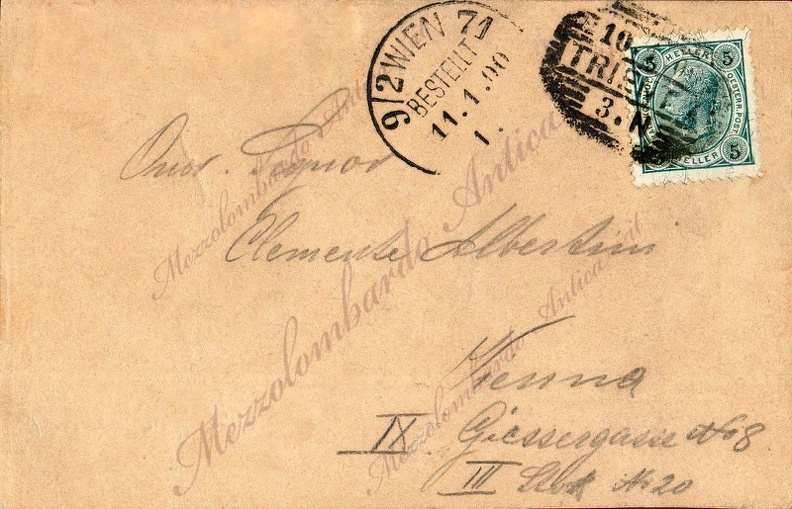 9/2 WIEN 71
BESTELLT
11.1.00
1.
10
TRIE
3.N
5 HELLER 5
OESTERR. POST
HELLER 5
Onor. Signor
Clemente Albertini
Vienna
IX. Giessergasse No 8
III No 20
Mezzolombardo Antica
Mezzolombardo Antica
Mezzolombardo Antica .it